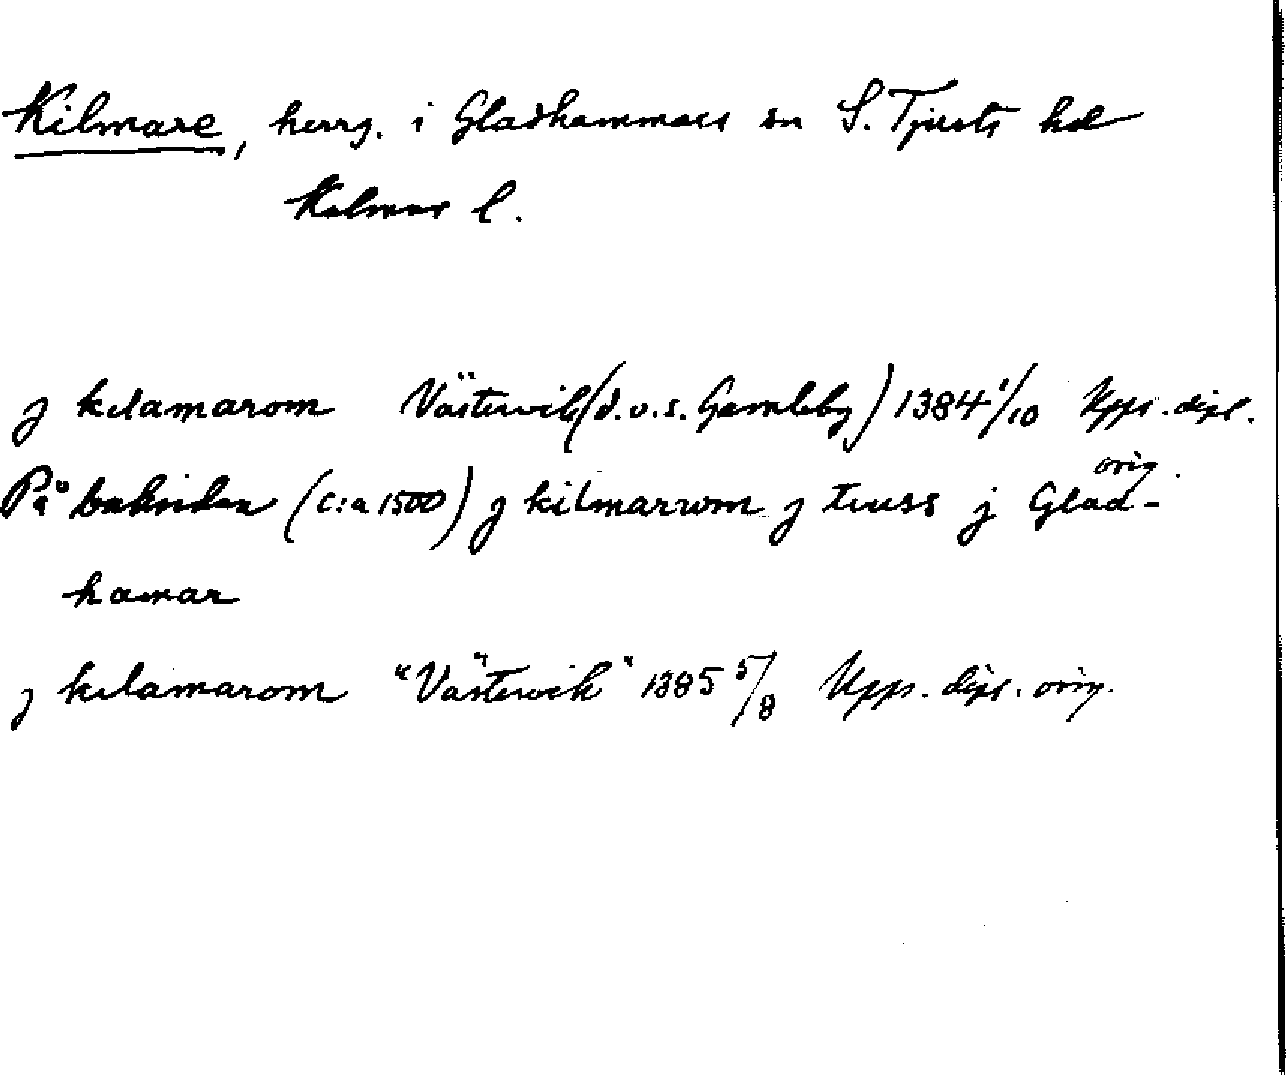 Kilmare, herrg. i Gladhammars sn S. Tjusts hd
Kalmar l.
j kilamarom Västervik (d.v.s. Gamleby) 1384 1/10 Upps. dipl.
orig.
På baksidan (c:a 1500) j kilmarrom j tiuss j Glad-
hamar
j kilamarom "Västervik" 1385 5/8 Upps. dipl. orig.